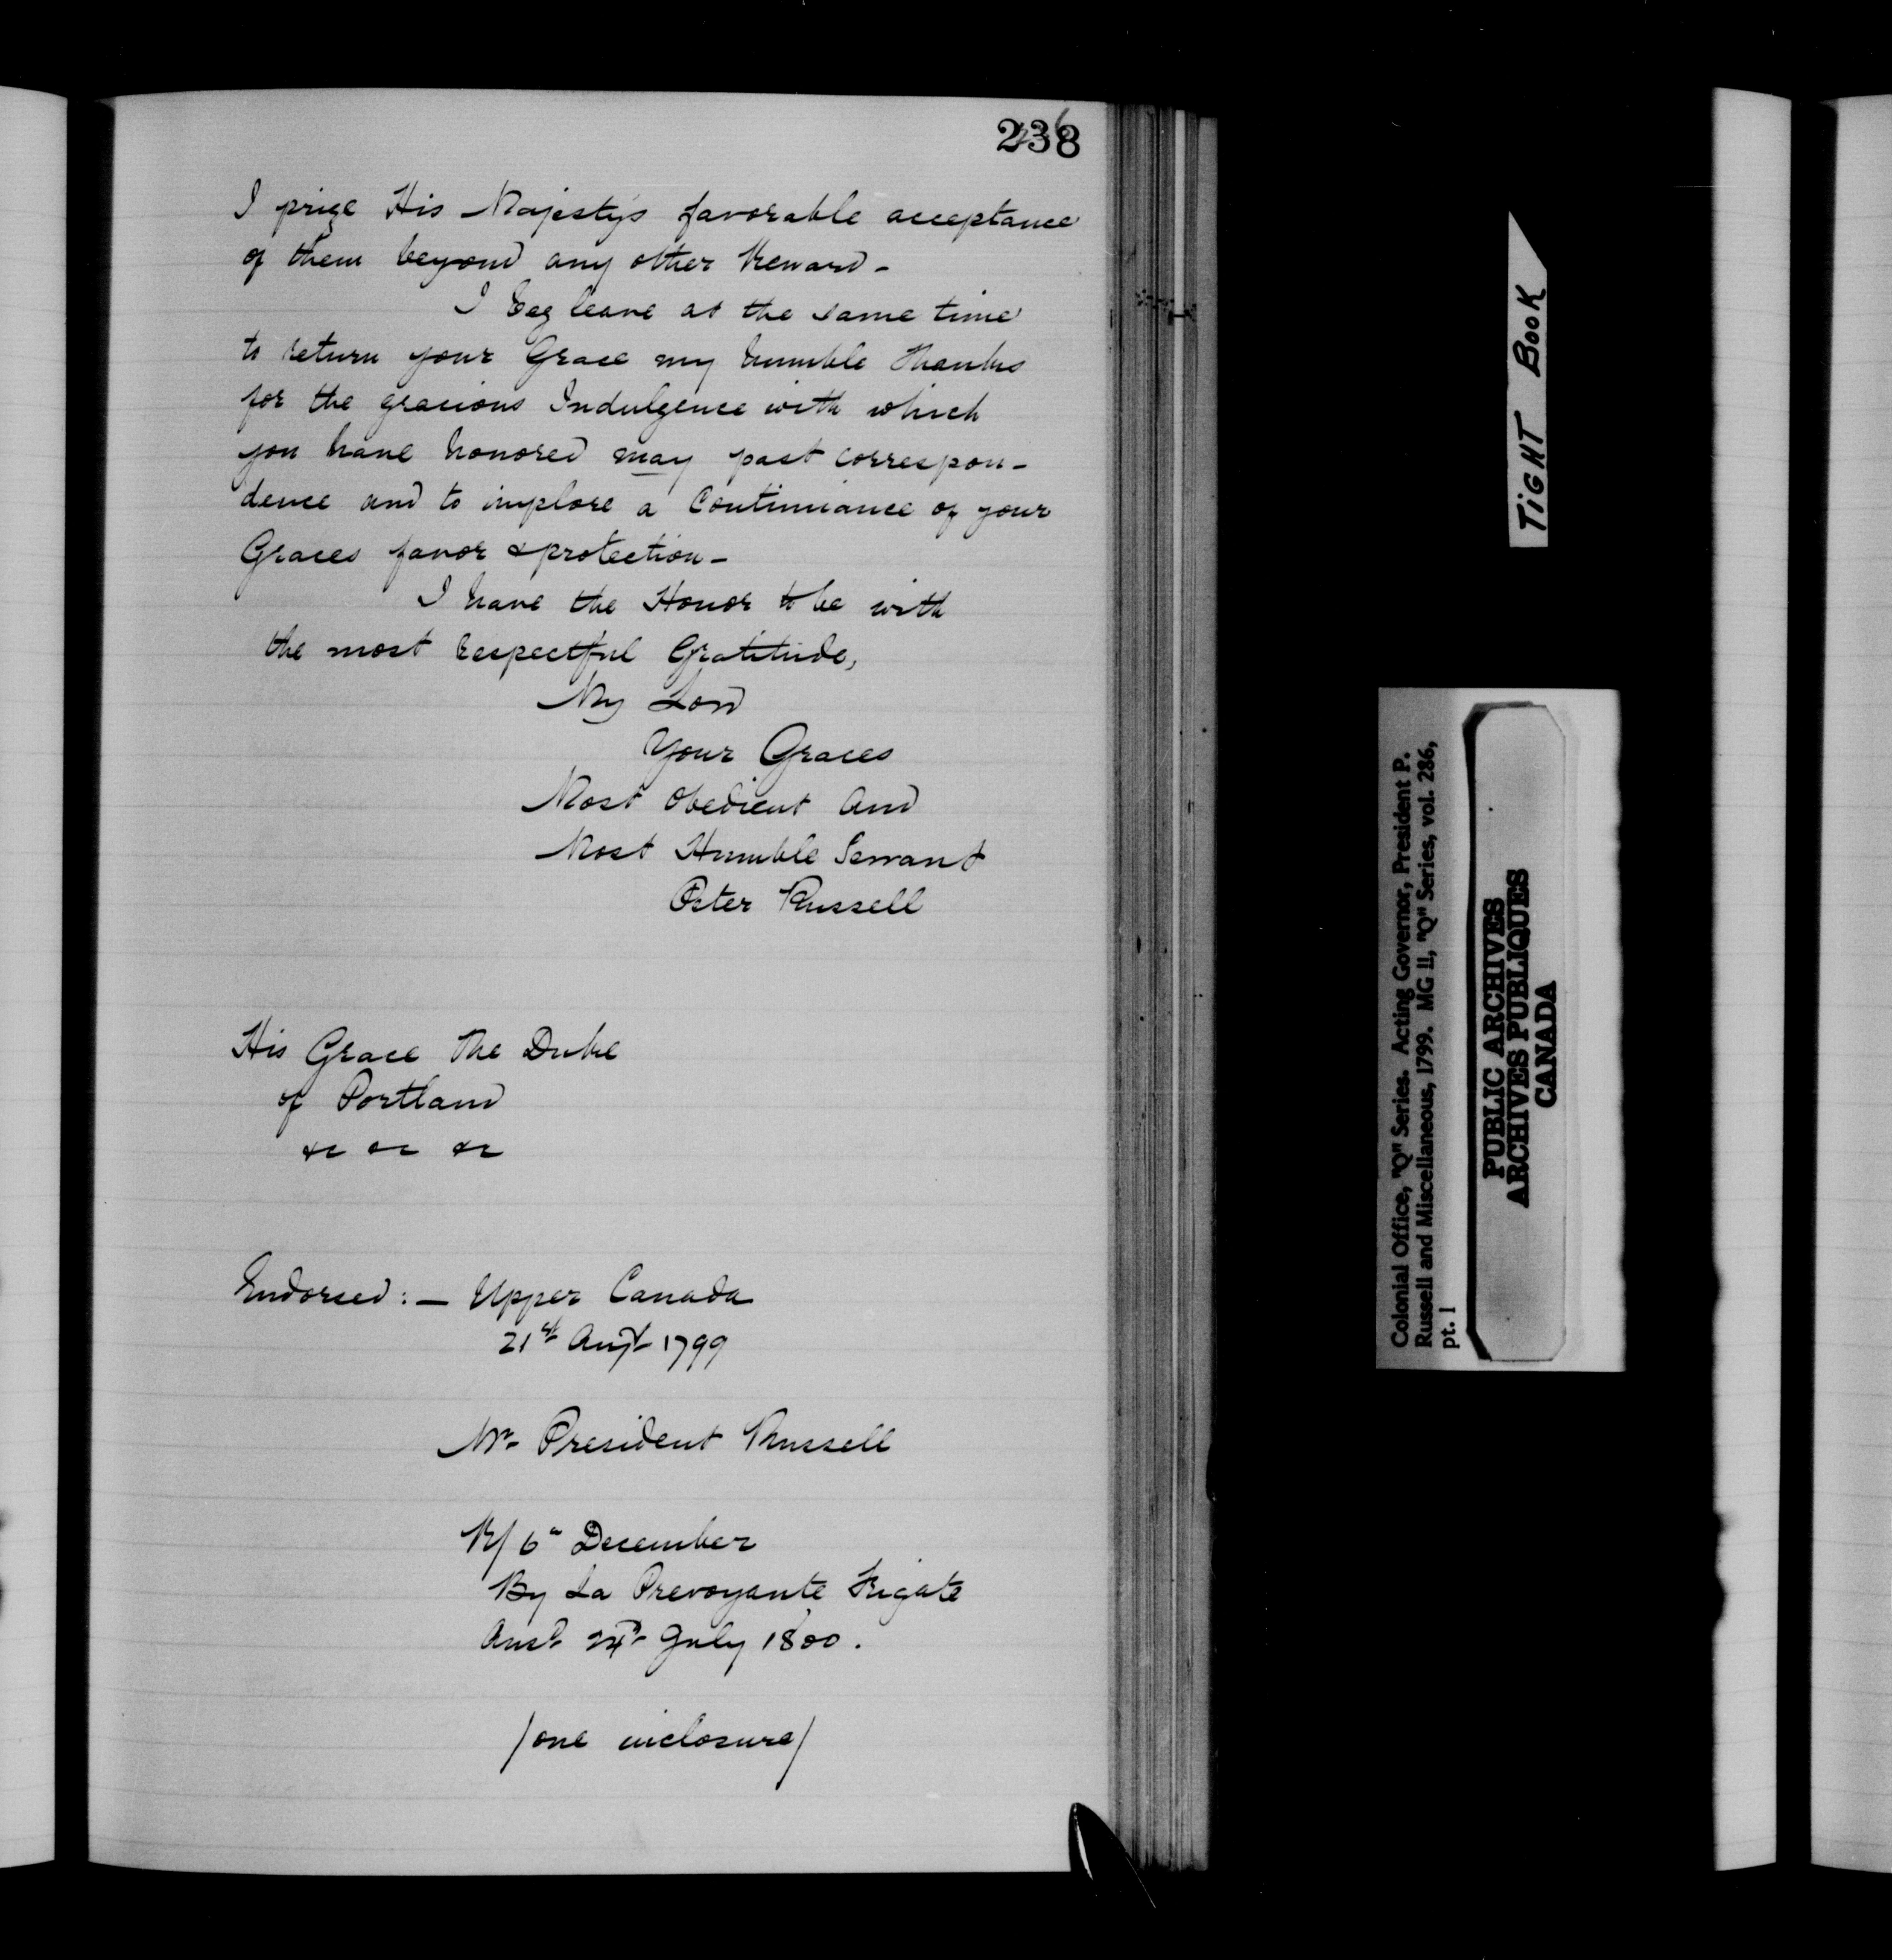 238
I prize His Majesty's favorable acceptance
of them beyond any other Reward -
I beg leave at the same time
to return your Grace my humble Thanks
for the gracious Indulgence with which
you have honored may past correspon-
dence and to implore a Continuance of your
Graces favor & protection -
I have the Honor to be with
the most respectful Gratitude,
My Lord
Your Graces
Most Obedient and
Most Humble Servant
Peter Russell
His Grace The Duke
of Portland
&c &c &c
Endorsed: - Upper Canada
21st Augt 1799
Mr President Russell
R/ 6th December
By La Prevoyante Frigate
Ansd 24th July 1800.
/one inclosure/
TIGHT BOOK
Colonial Office, "Q" Series. Acting Governor, President P.
Russell and Miscellaneous, 1799. MG 11, "Q" Series, vol. 286,
pt. 1
PUBLIC ARCHIVES
ARCHIVES PUBLIQUES
CANADA